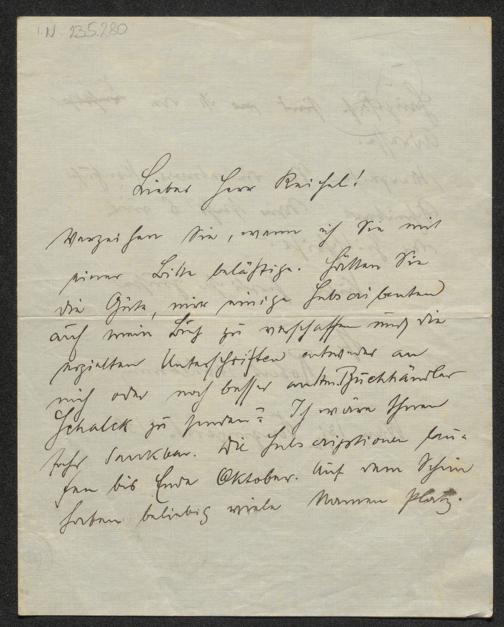 I.N. 235.280
Lieber Herr Reichel!
Verzeihen Sie, wenn ich Sie mit
einer Bitte belästige. Hätten Sie
die Güte, mir einige Subscribenten
auf mein Buch zu verschaffen und die
erzielten Unterschriften entweder an
mich oder noch besser an den Buchhändler
Schalek zu senden? Ich wäre Ihnen
sehr dankbar. Die Subscriptionen lau-
fen bis Ende Oktober. Auf dem Schein
haben beliebig viele Namen Platz.